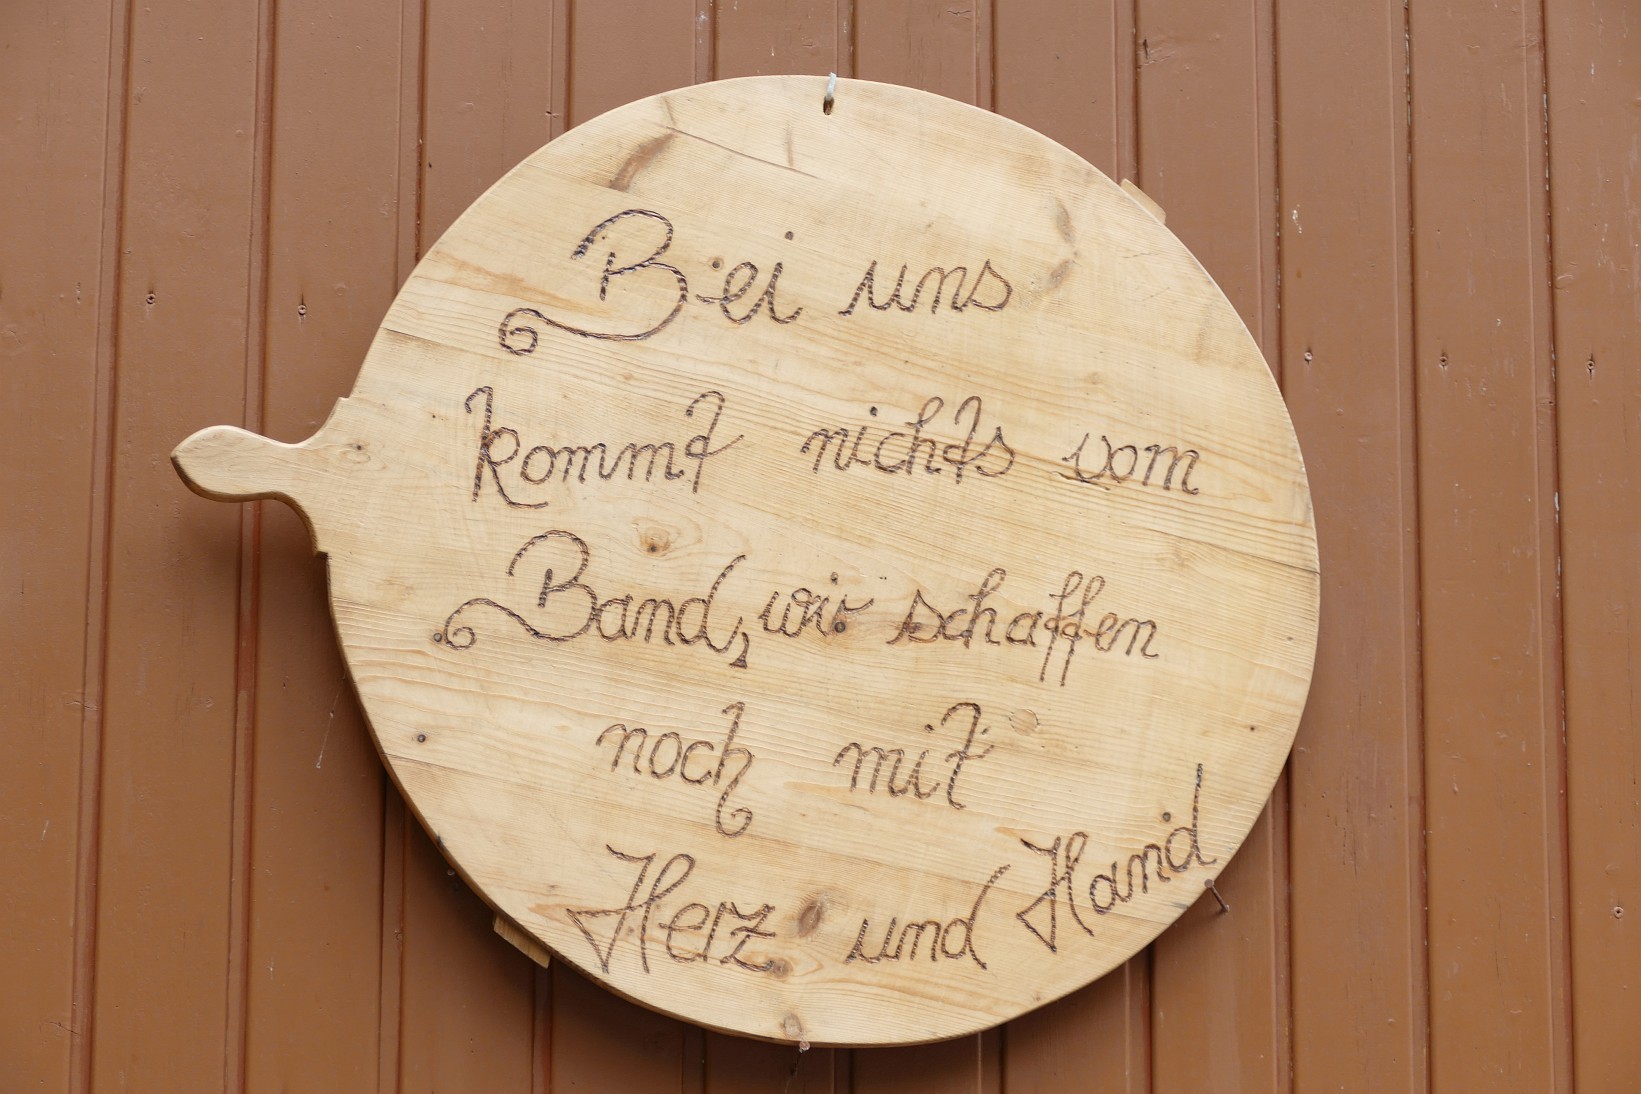 Bei uns
kommt nichts vom
Band, wir schaffen
noch mit
Herz und Hand